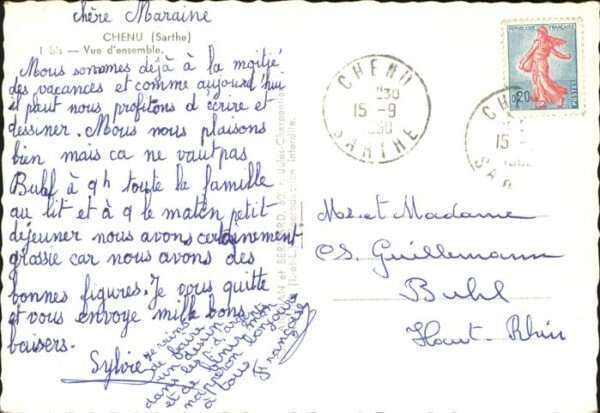 chère Maraine
CHENU (Sarthe)
1 bis — Vue d'ensemble.
Nous sommes déjà à la moitié
des vacances et comme aujourd'hui
il peut nous profitons d'écrire et
dessiner. Nous nous plaisons
bien mais ca ne vaut pas
Buhl à 9h toute la famille
au lit et à 9 le matin petit-
déjeuner nous avons certainement
grossie car nous avons des
bonnes figures. Je vous quitte
et vous envoye mille bons
baisers.
Sylvie
de faire
un dessin
dans
et de finir mon
napperon bonjours
à tous
Françoise
CHENU
15-9
SARTHE
0,20
CH
15
SAR
Mr et Madame
Guillemann
Buhl
Haut-Rhin